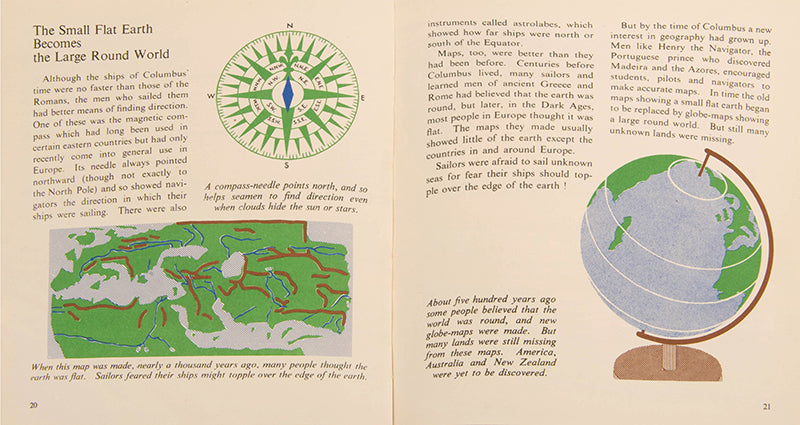 The Small Flat Earth
Becomes
the Large Round World
Although the ships of Columbus'
time were no faster than those of the
Romans, the men who sailed them
had better means of finding direction.
One of these was the magnetic com-
pass which had long been used in
certain eastern countries but had only
recently come into general use in
Europe. Its needle always pointed
northward (though not exactly to
the North Pole) and so showed navi-
gators the direction in which their
ships were sailing. There were also
N
W
E
S
N.W.
S.W.
S.E.
A compass-needle points north, and so
helps seamen to find direction even
when clouds hide the sun or stars.
When this map was made, nearly a thousand years ago, many people thought the
earth was flat. Sailors feared their ships might topple over the edge of the earth.
20
instruments called astrolabes, which
showed how far ships were north or
south of the Equator.
Maps, too, were better than they
had been before. Centuries before
Columbus lived, many sailors and
learned men of ancient Greece and
Rome had believed that the earth was
round, but later, in the Dark Ages,
most people in Europe thought it was
flat. The maps they made usually
showed little of the earth except the
countries in and around Europe.
Sailors were afraid to sail unknown
seas for fear their ships should top-
ple over the edge of the earth !
But by the time of Columbus a new
interest in geography had grown up.
Men like Henry the Navigator, the
Portuguese prince who discovered
Madeira and the Azores, encouraged
students, pilots and navigators to
make accurate maps. In time the old
maps showing a small flat earth began
to be replaced by globe-maps showing
a large round world. But still many
unknown lands were missing.
About five hundred years ago
some people believed that the
world was round, and new
globe-maps were made. But
many lands were still missing
from these maps. America,
Australia and New Zealand
were yet to be discovered.
21